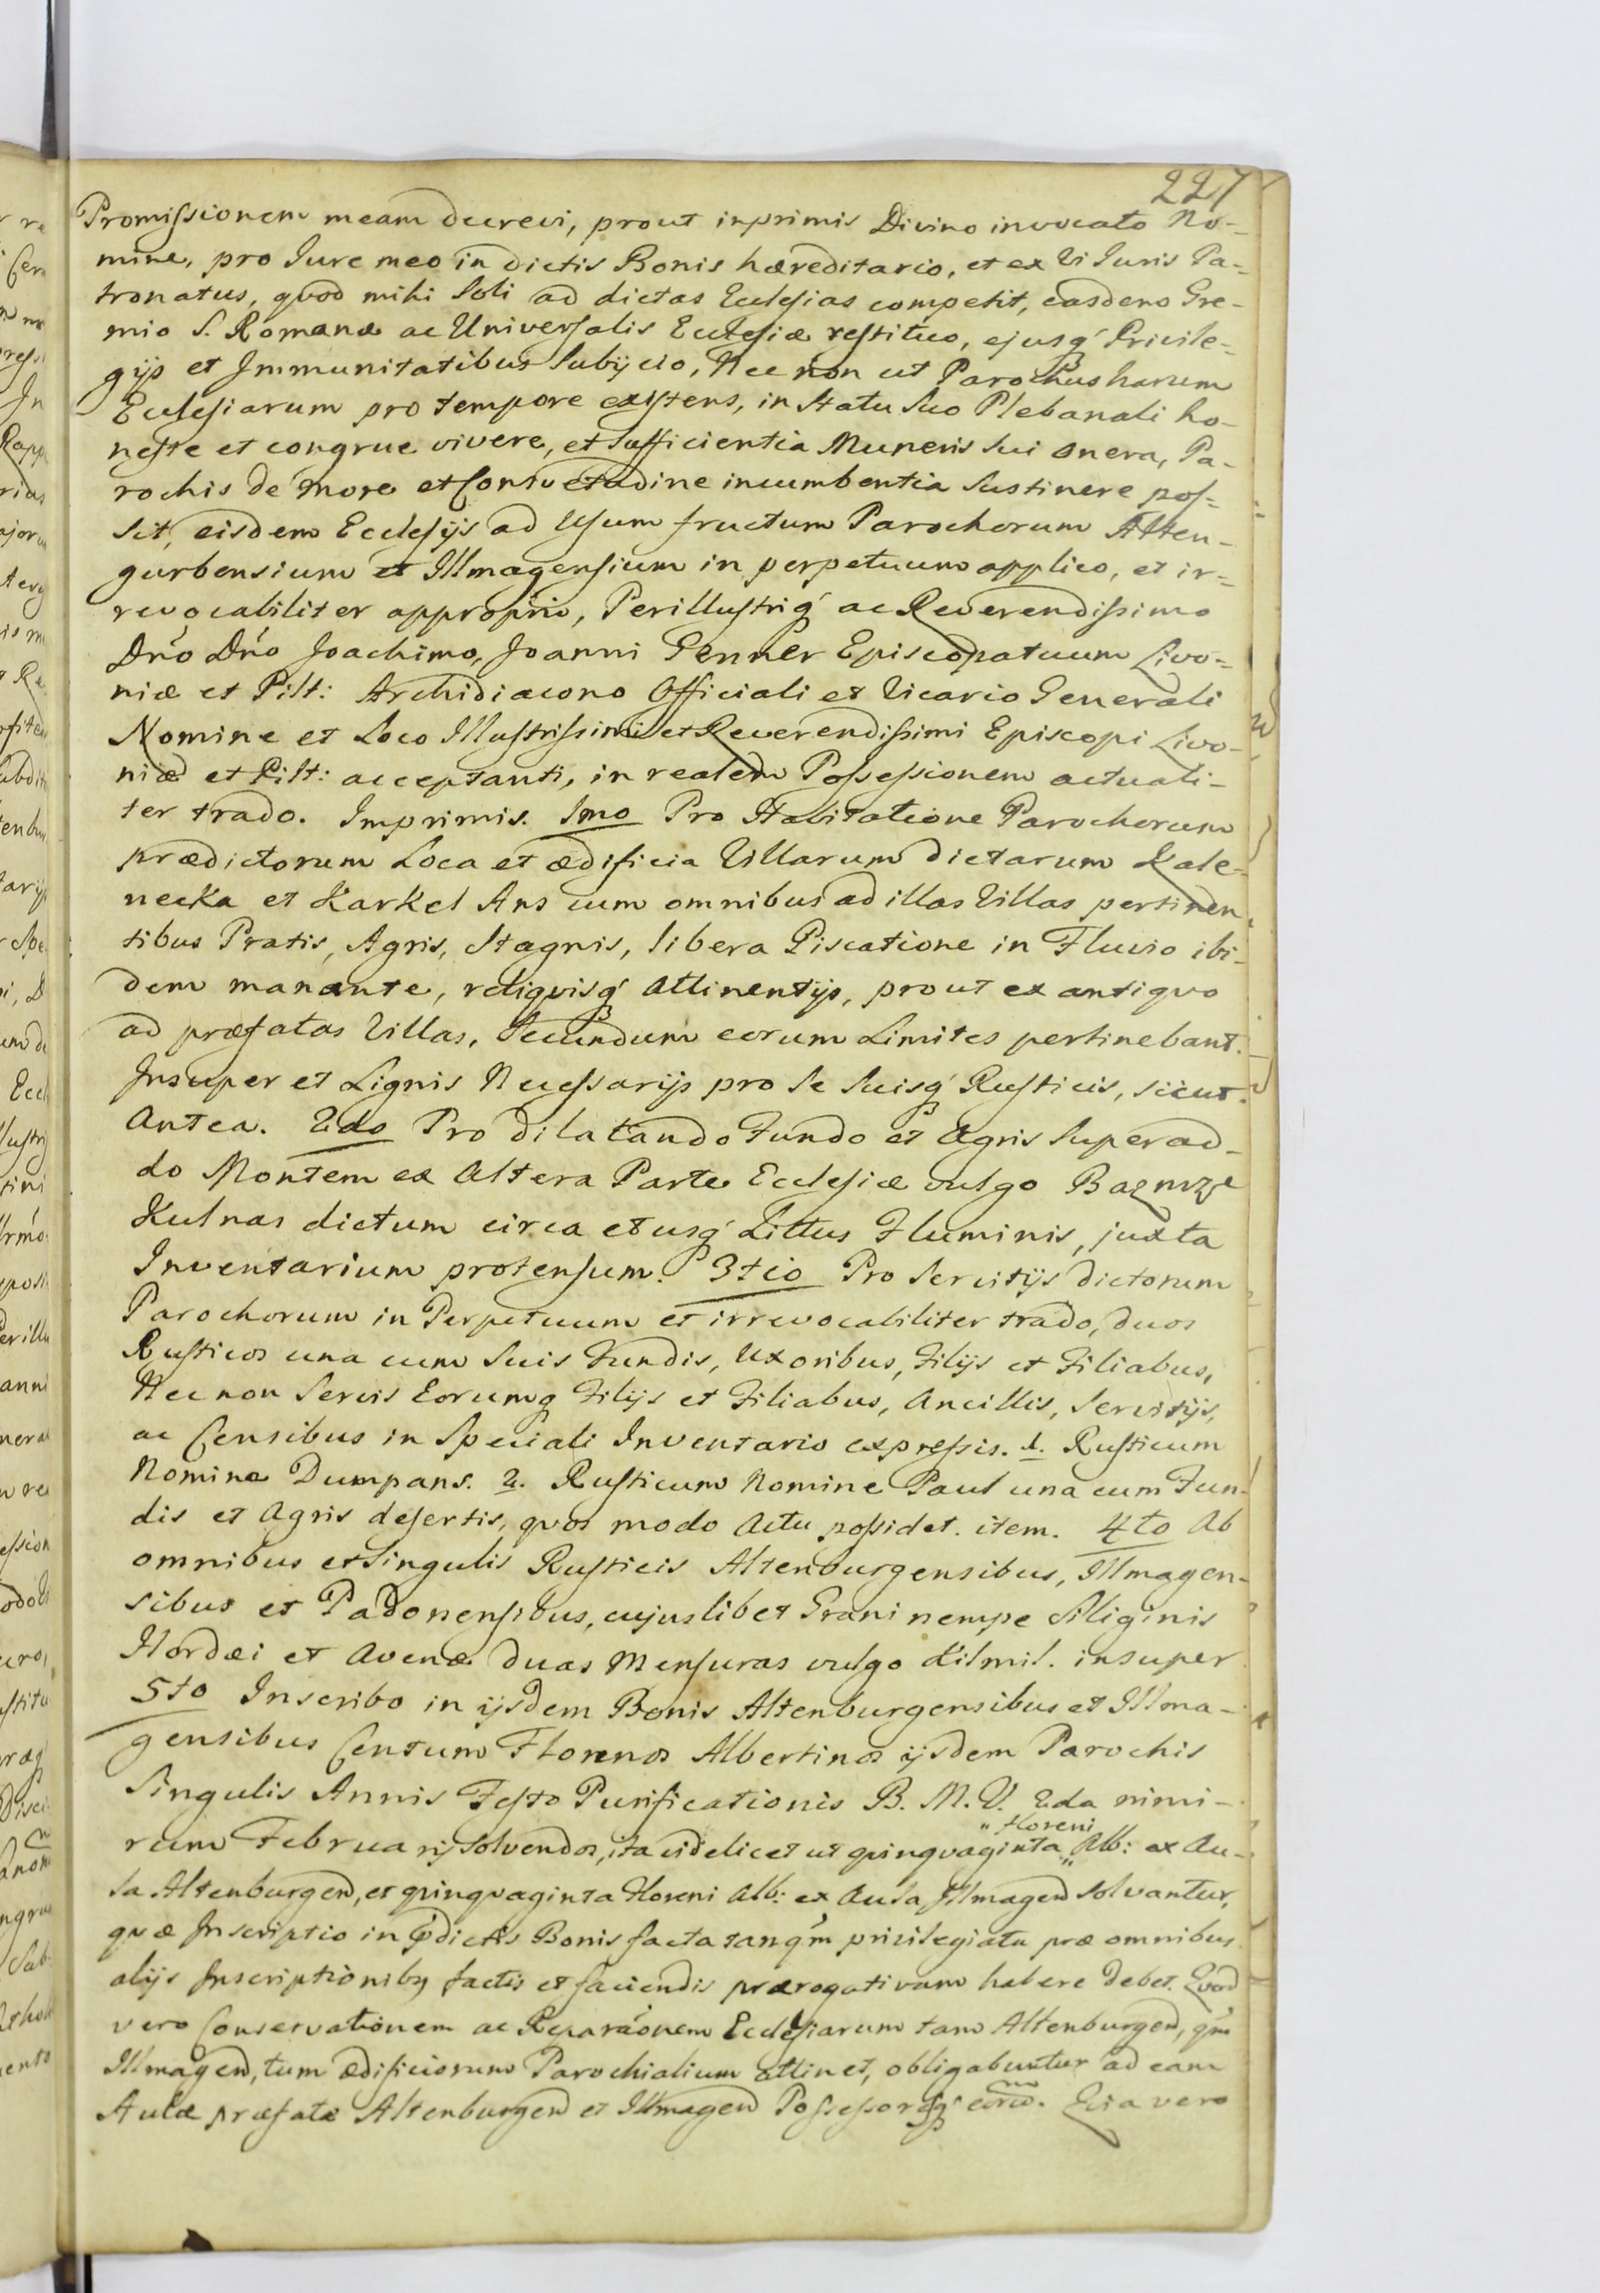 227
Promissionem meam decrevi, prout inprimis Divino invocato No-
mine, pro Jure meo in dictis Bonis hæreditario, et ex Vi Juris Pa-
tronatus, quod mihi Soli ad dictas Ecclesias competit, easdem Gre-
mio S. Romanæ ac Universalis Ecclesiæ restituo, ejusq́ Privile-
gijs et Immunitatibus Subijcio, Nec non ut Parochus harum
Ecclesiarum pro tempore existens, in Statu Suo Plebanali ho-
neste et congrue vivere, et Sufficientia Muneris Sui onera, Pa-
rochis de More et Consvetudine incumbentia Sustinere pos-
sit, eisdem Ecclesijs ad Usum fructum Parochorum Alten-
gurbensium et Illmagensium in perpetuum applico, et ir-
revocabiliter approprio, Perillustriq́ ac Reverendissimo
Dńo Dńo Joachimo, Joanni Genner Episcopatuum Livo-
niæ et Pilt: Archidiacono Officiali et Vicario Generali
Nomine et Loco Illustrissimi et Reverendissimi Episcopi Livo-
niæ et Pilt: acceptanti, in realem Possessionem actuali-
ter trado. Imprimis. 1mo Pro Habitatione Parochorum
prædictorum Loca et ædificia Villarum dictarum Kale-
necka et Karkel Ans cum omnibus ad illas Villas pertinen-
tibus Pratis, Agris, Stagnis, libera Piscatione in Fluvio ibi-
dem manante, reliquisq́ Attinentijs, prout ex antiquo
ad præfatas Villas, Secundum eorum Limites pertinebant.
Insuper et Lignis Necessarijs pro Se Suisq́ Rusticis, sicut
Antea. 2do Pro dilatando Fundo et Agris Superad-
do Montem ex Altera Parte Ecclesiæ vulgo Baznize
Kulnas dictum circa et usq́ Littus Fluminis, juxta
Inventarium protensum. 3tio Pro Servitijs dictorum
Parochorum in Perpetuum et irrevocabiliter trado, duos
Rusticos una cum Suis Fundis, Uxoribus, Filijs et Filiabus,
Nec non Servis Eorumq Filijs et Filiabus, Ancillis, Servitijs,
ac Censibus in Speciali Inventario expressis. 1. Rusticum
Nomine Dumpans. 2. Rusticum Nomine Paul una cum Fun-
dis et Agris desertis, quos modo Actu possidet. item. 4to Ab
omnibus et Singulis Rusticis Altenburgensibus, Illmagen-
sibus et Padonensibus, cujuslibet Grani nempe Siliginis
Hordæi et Avenæ duas Mensuras vulgo Kilmit. insuper
5to Inscribo in ijsdem Bonis Altenburgensibus et Illma-
gensibus Centum Florenos Albertinos ijsdem Parochis
Singulis Annis Festo Purificationis B. M. V. 2da nimi-
rum Februarij Solvendos, ita videlicet ut quinquaginta "Floreni" Alb: ex Au-
la Altenburgen, et quinquaginta Floreni Alb: ex Aula Illmagen Solvantur,
quæ Inscriptio in p̃dictis Bonis facta tanq́m privilegiata præ omnibus
alijs Inscriptionibq factis et faciendis prærogativam habere debet. Quod
vero Conservationem ac Reparáonem Ecclesiarum tam Altenburgen, q́m
Illmagen, tum ædificiorum Parochialium attinet, obligabuntur ad eam
Aulæ præfatæ Altenburgen et Illmagen Possessoresq́ eorum. Quia vero